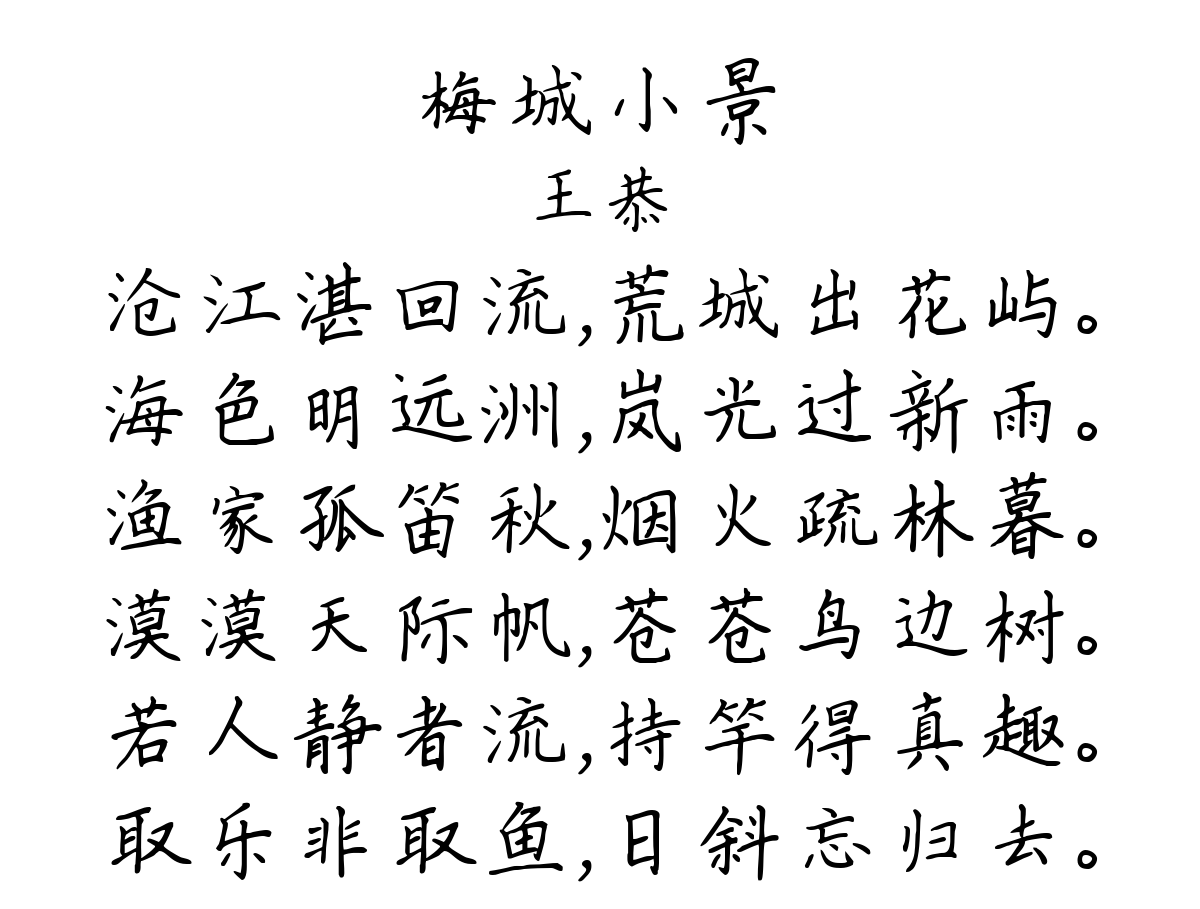 梅城小景
王恭
沧江湛回流,荒城出花屿。
海色明远洲,岚光过新雨。
渔家孤笛秋,烟火疏林暮。
漠漠天际帆,苍苍鸟边树。
若人静者流,持竿得真趣。
取乐非取鱼,日斜忘归去。